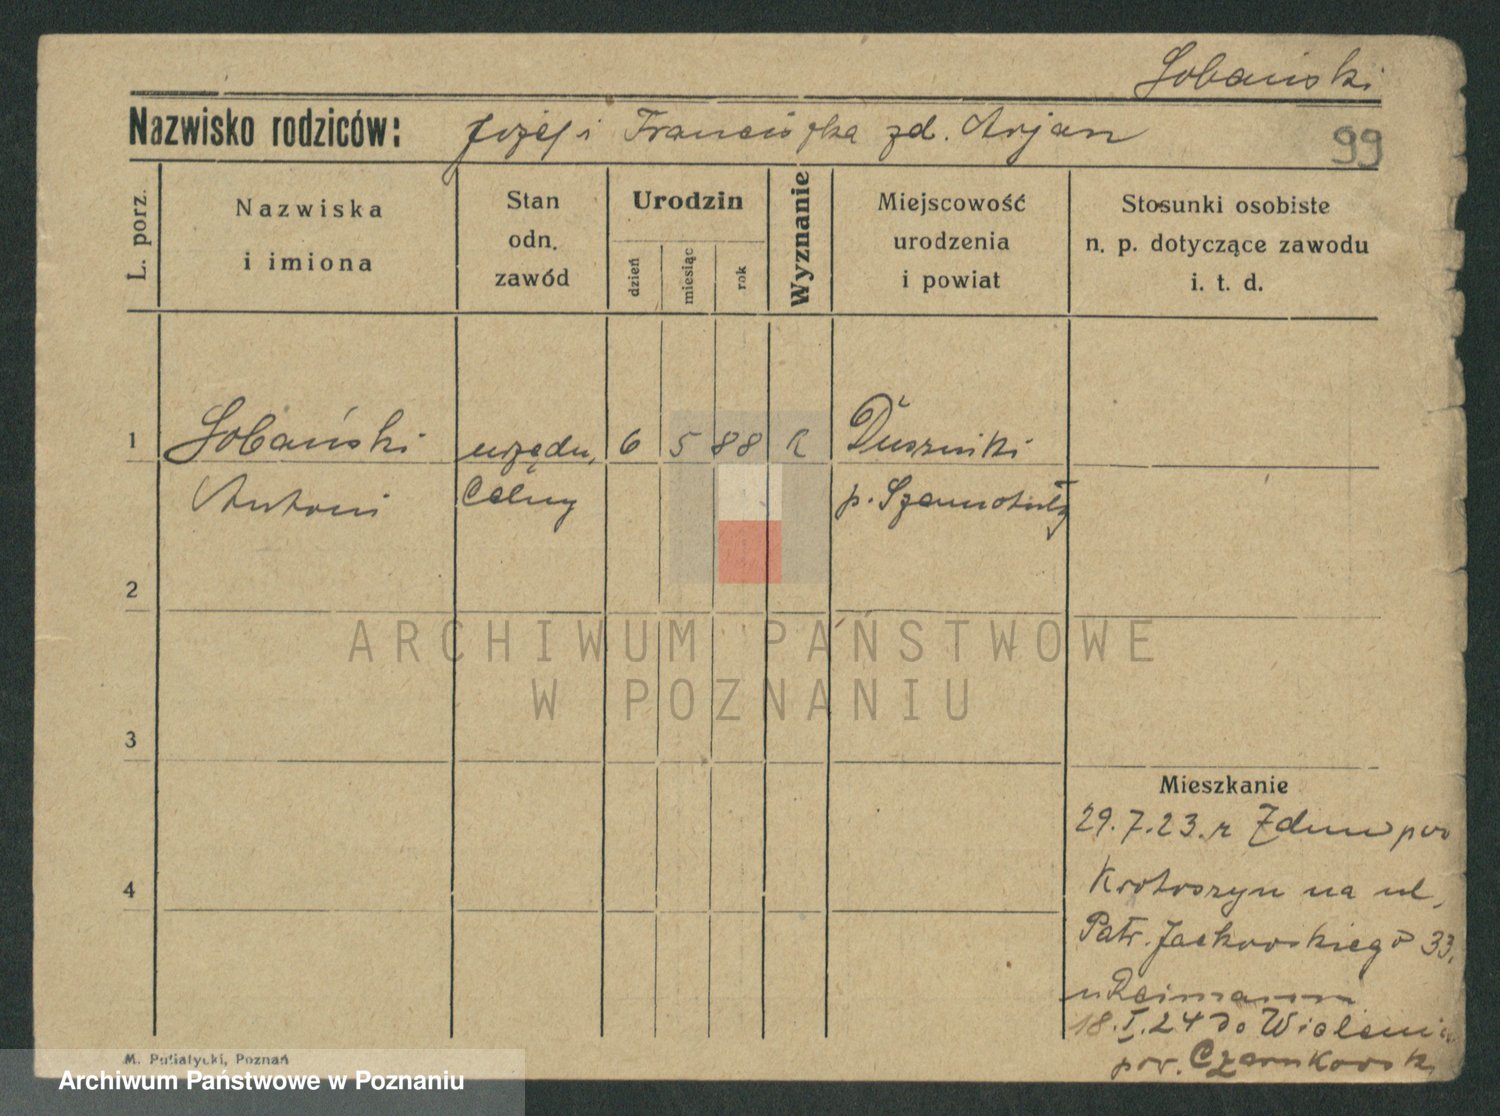 Sobański
Nazwisko rodziców: Józef i Franciszka zd. Arjan
99
L. porz.
Nazwiska
i imiona
Stan
odn.
zawód
Urodzin
dzień
miesiąc
rok
Wyznanie
Miejscowość
urodzenia
i powiat
Stosunki osobiste
n. p. dotyczące zawodu
i. t. d.
1 Sobański urzędn. 6 5 88 k Duszniki
Antoni Celny p. Szamotuły
2
3
4
Mieszkanie
29.7.23. z Zduny pow
Krotoszyn na ul.
Patr. Jackowskiego 33.
u Reimann
18.I.24 do Wieleni
pow. Czarnkowsk
M. Putiatycki, Poznań
ARCHIWUM PAŃSTWOWE
W POZNANIU
Archiwum Państwowe w Poznaniu